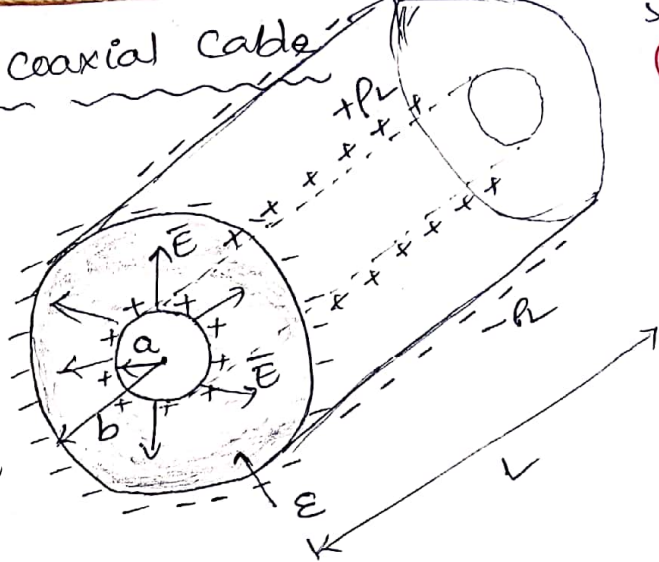 coaxial Cable
+ρL
E̅
a
E̅
b
-ρL
ε
L